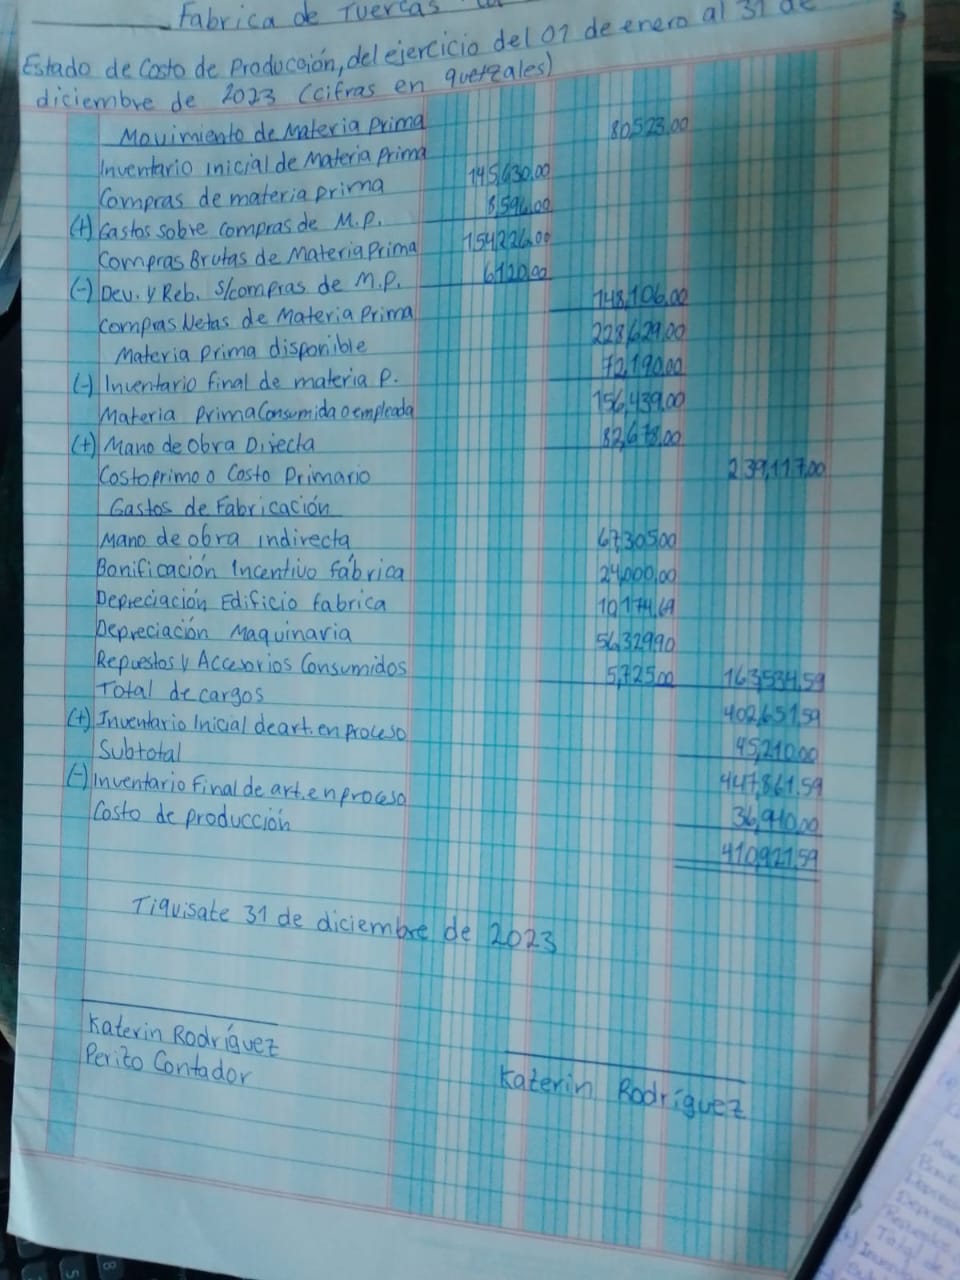 Fabrica de Tuercas
Estado de Costo de Producción, del ejercicio del 01 de enero al 31 de
diciembre de 2023 (cifras en quetzales)
Movimiento de Materia Prima
Inventario inicial de Materia Prima 80,523.00
Compras de materia prima 145,630.00
(+) Gastos sobre compras de M.P. 8,596.00
Compras Brutas de Materia Prima 154,226.00
(-) Dev. y Reb. s/compras de M.P. 6,120.00
Compras Netas de Materia Prima 148,106.00
Materia prima disponible 228,629.00
(-) Inventario final de materia P. 72,190.00
Materia Prima Consumida o empleada 156,439.00
(+) Mano de Obra Directa 82,678.00
Costo primo o Costo Primario 239,117.00
Gastos de Fabricación
Mano de obra indirecta 67,305.00
Bonificación Incentivo fábrica 24,000.00
Depreciación Edificio fabrica 10,174.69
Depreciación Maquinaria 56,329.90
Repuestos y Accesorios Consumidos 5,725.00 163,534.59
Total de cargos 402,651.59
(+) Inventario Inicial de art. en proceso 45,210.00
Subtotal 447,861.59
(-) Inventario Final de art. en proceso 36,940.00
Costo de producción 410,921.59
Tiquisate 31 de diciembre de 2023
Katerin Rodríguez
Perito Contador
Katerin Rodríguez